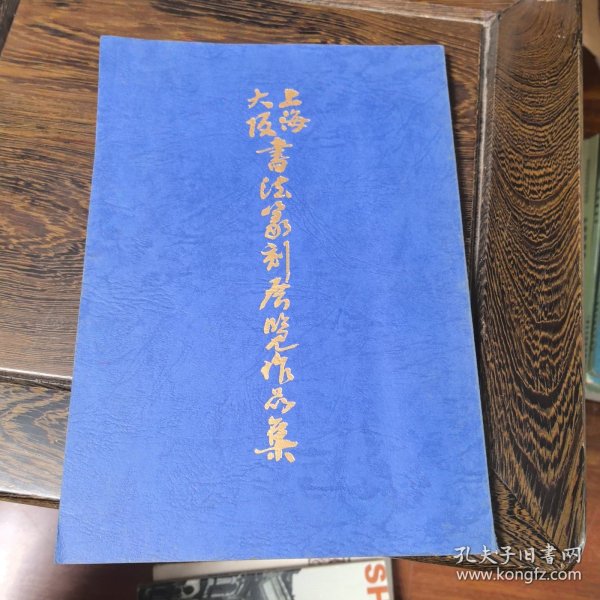 上海
大阪
书法篆刻展览作品集
SH
孔夫子旧书网
www.kongfz.com